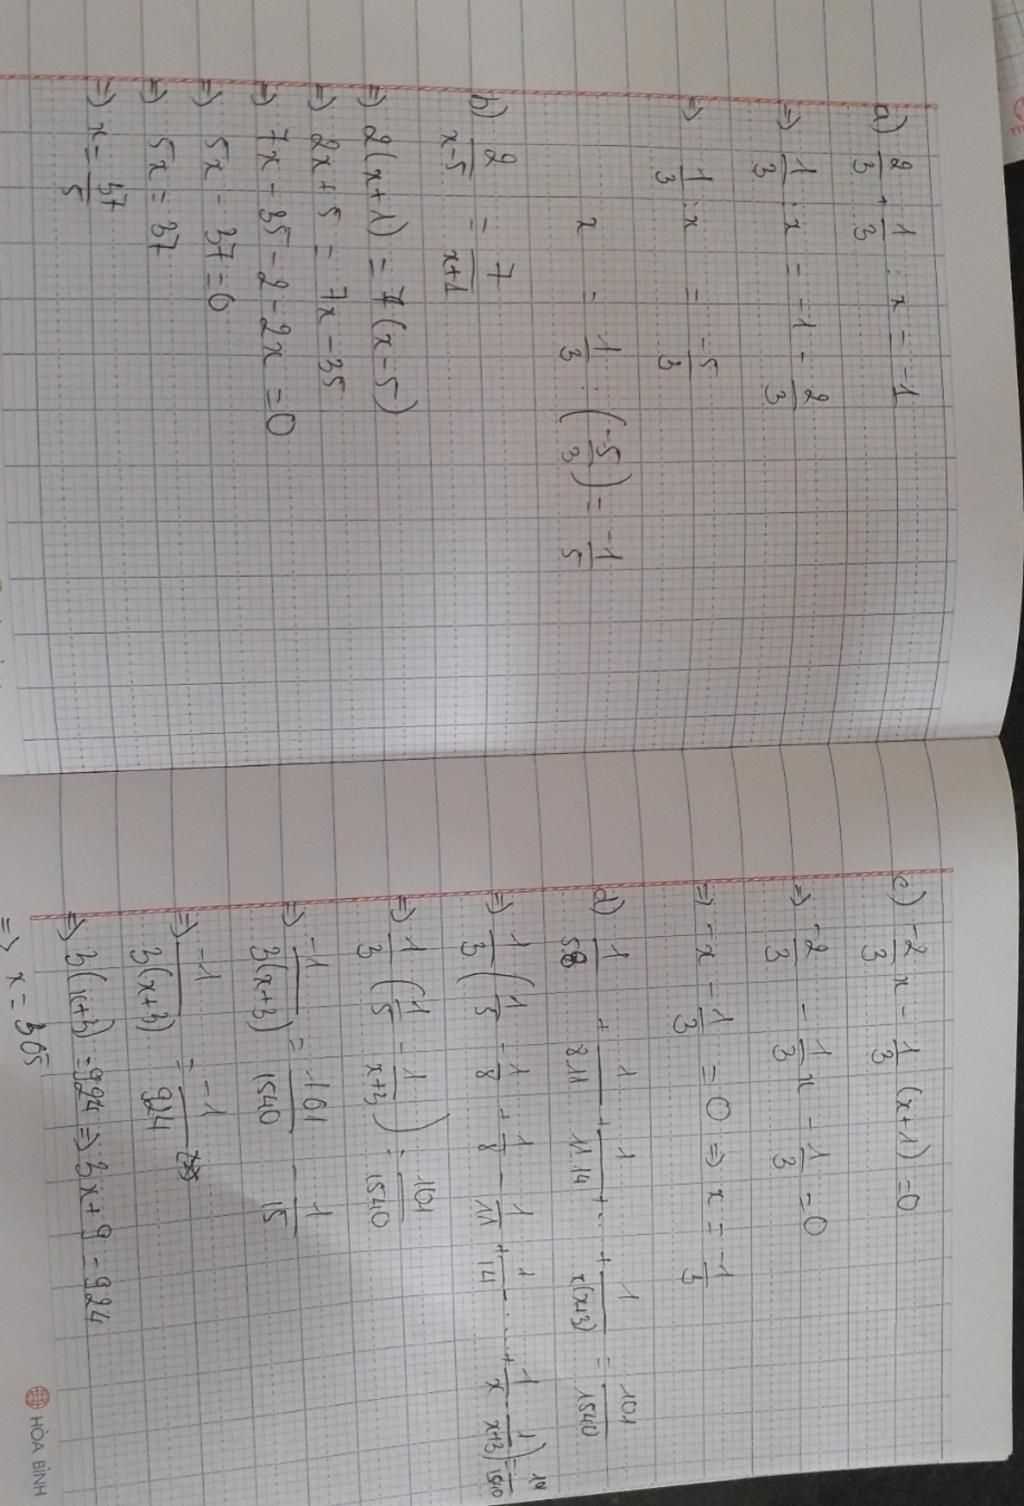 a) 2/3 + 1/3 : x = -1
=> 1/3 : x = -1 - 2/3
=> 1/3 : x = -5/3
x = 1/3 : (-5/3) = -1/5
b) 2/x-5 = 7/x+1
=> 2(x+1) = 7(x-5)
=> 2x+5 = 7x-35
=> 7x-35-2-2x=0
=> 5x-37=0
=> 5x=37
=> x=37/5
c) -2/3 x - 1/3 (x+1)=0
=> -2/3 - 1/3 x - 1/3 = 0
=> -x - 1/3 = 0 => x = -1/3
d) 1/5.8 + 1/8.11 + 1/11.14 + ... + 1/x(x+3) = 101/1540
=> 1/3 (1/5 - 1/8 + 1/8 - 1/11 + 1/14 - .... + 1/x - 1/x+3) = 101/1540
=> 1/3 (1/5 - 1/x+3) = 101/1540
=> -1/3(x+3) = 101/1540 - 1/15
=> -1/3(x+3) = -1/924
=> 3(x+3)=924 => 3x+9=924
=> x=305
HÒA BÌNH